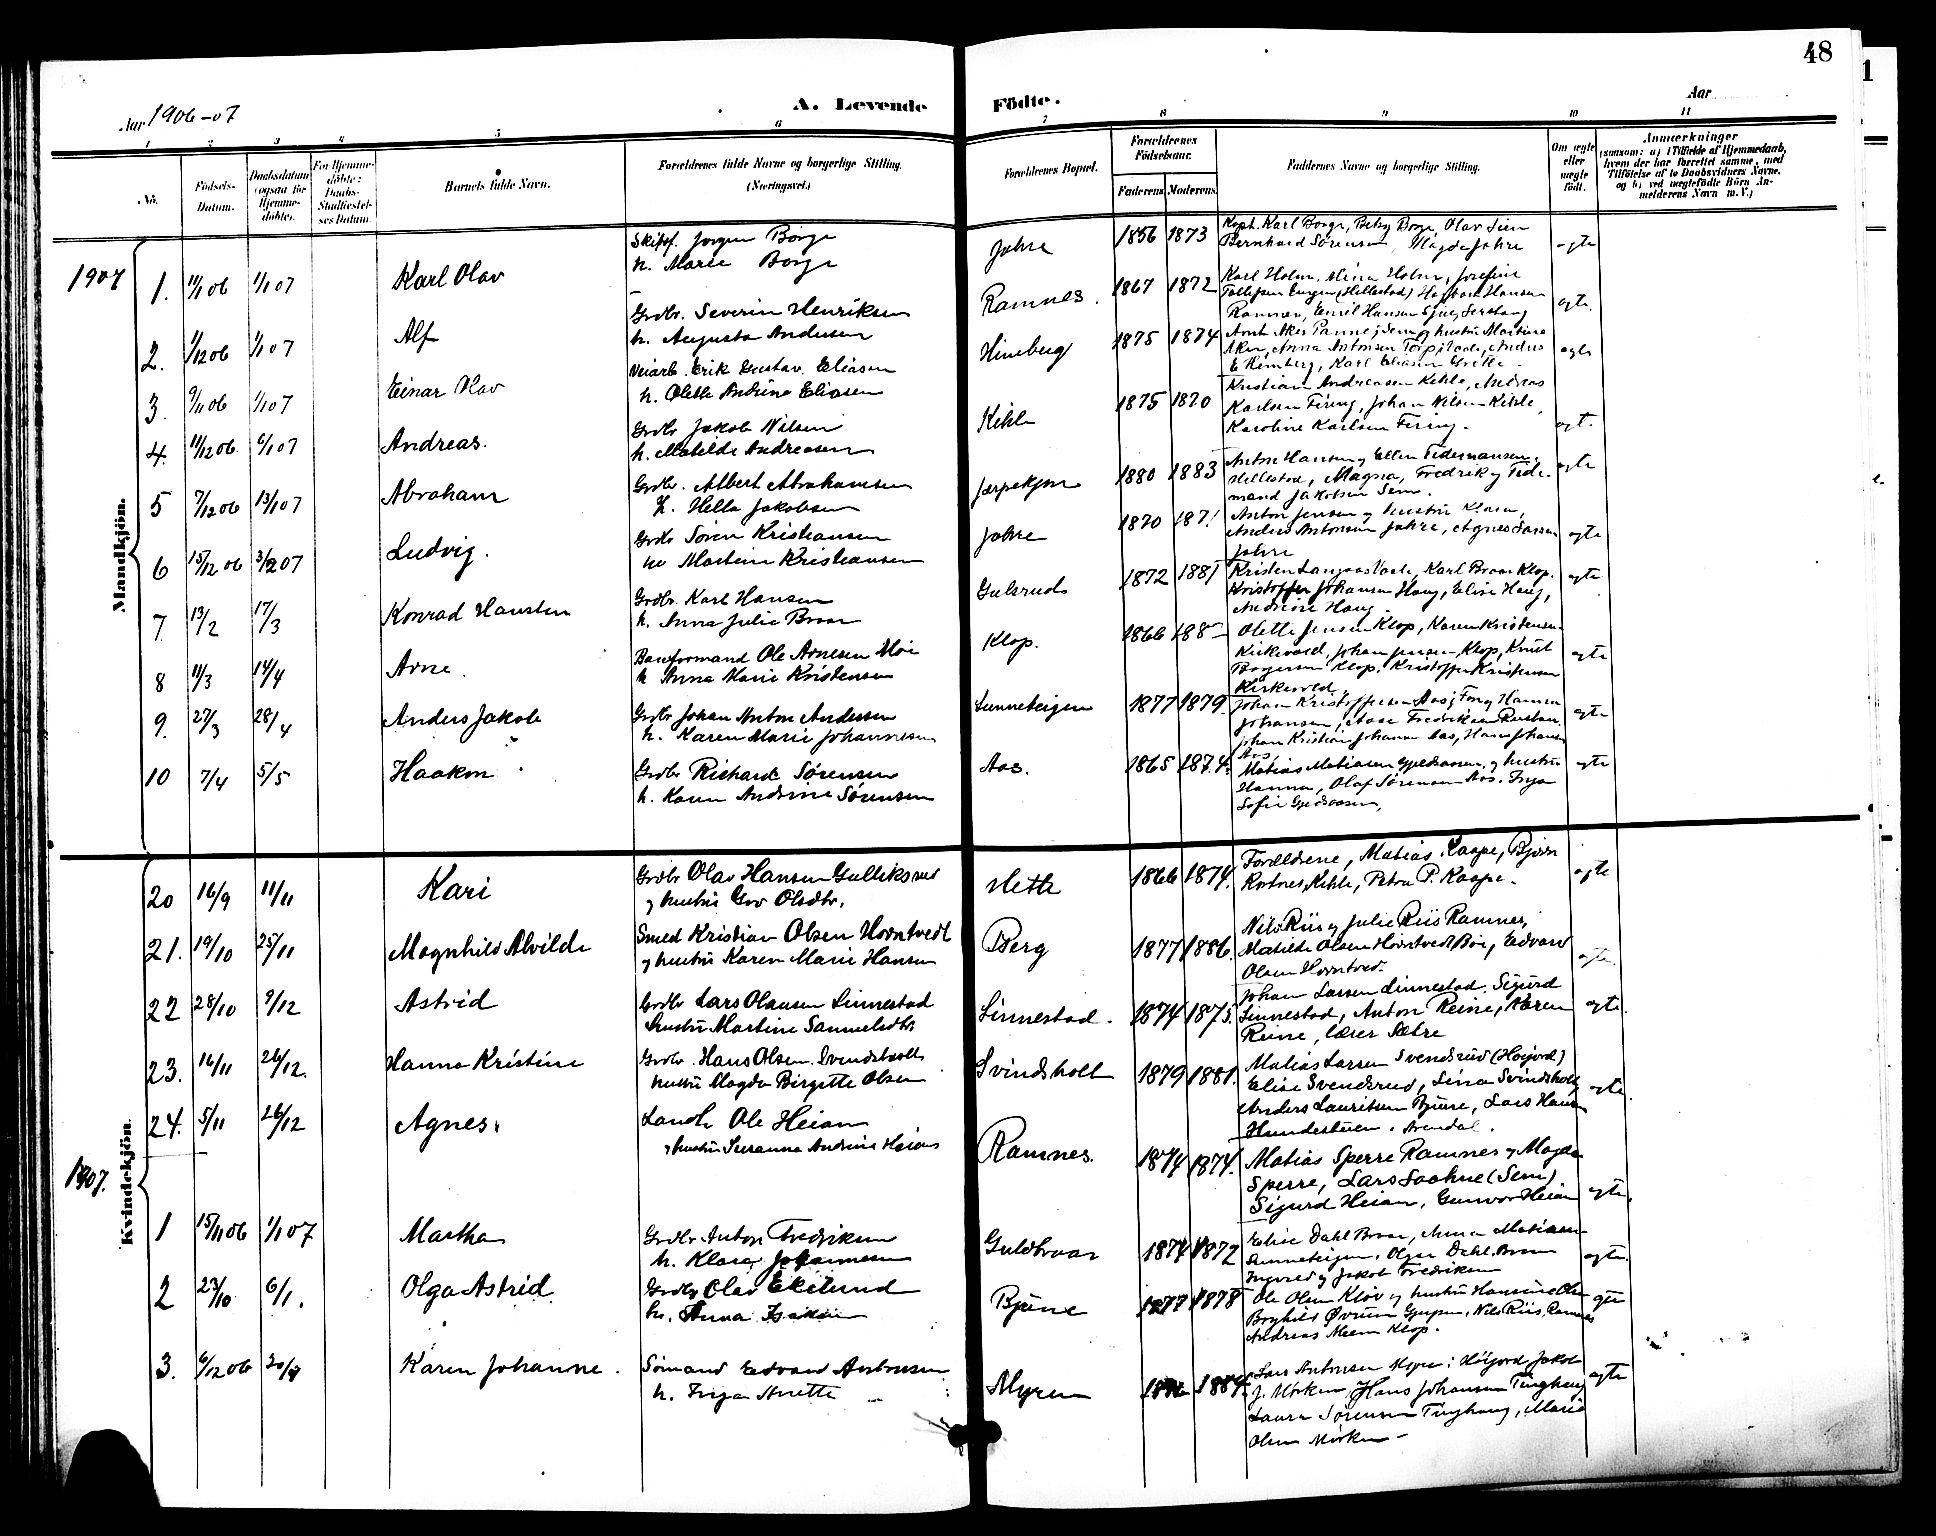 48
Aar 1906-07
A. Levende Födte.
Aar
1 2 3 4 5 6 7 8 9 10 11
No.
Födsels-Datum.
Daabsdatum (ogsaa for Hjemmedöbte).
For Hjemmedöbte: Daabs-Stadfæstelses Datum.
Barnets fulde Navn.
Forældrenes fulde Navne og borgerlige Stilling. (Næringsvei.)
Forældrenes Bopæl.
Forældrenes Födselsaar.
Faderens. Moderens.
Faddernes Navne og borgerlige Stilling.
Om ægte eller uægte födt.
Anmærkninger
(saasom: a) i Tilfælde af Hjemmedaab, hvem der har forrettet samme, med Tilföielse af to Daabsvidners Navne, og b) ved uægtefödte Börn Anmelderens Navn m. V.)
Mandkjön.
1907
1. 11/1 06 1/1 07 Karl Olav
Skibsf. Jørgen Borge
h. Marie Borge
Jahre 1856 1873
Kapt. Karl Borge, Betsy Borge, Olav Sem
Bernhard Sørensen, Magda Jahre
ægte
2. 1/12 06 1/1 07 Alf
Grdbr. Severin Henriksen
h. Augusta Andersen
Ramnes. 1867 1872
Karl Holm, Mina Holm, Josefine
Tollefsen Engen (Hillestad) Hagbart Hansen
Ramnes, Emil Hansen
ægte.
3. 9/11 06 1/1 07 Einar Olav
Veiarb. Erik Gustav Eliasen
h. Olette Andrine Eliasen
Himberg 1875 1874
Aker, Anna Antonsen
E Himberg, Karl Eliasen
ægte
4. 11/12 06 6/1 07 Andreas.
Grdbr Jakob Nilsen
h. Matilde Andreasen
Kihle 1875 1870
Kristian Andreasen Kihle, Andreas
Karlsen Firing, Johan Nilsen Kihle,
Karoline Karlsen Firing.
ægte.
5 7/12 06 13/1 07 Abraham
Grdbr. Albert Abrahamsen
h. Hella Jakobsen
Jerpekjøn 1880 1883
Anton Hansen og Ellen Tidemansen,
Hillestad, Magna, Fredrik og Tidemand Jakobsen Sem.
ægte
6 15/12 06 3/2 07 Ludvig.
Grdbr Søren Kristiansen
h. Martine Kristiansen
Jahre 1870 187
Anton Jensen og hustru Klara,
Anders Antonsen Jahre, Agnes Larsen
Jahre
ægte
7 13/2 17/3 Konrad Hansten
Grdbr. Karl Hansen
h. Anna Julie Braar
Gulsrud 1872 1881
Kristen Langaas Vaale, Karl Braar Klop.
Kristoffer Johansen Haug, Elise Haug,
Andrine Haug.
ægte
8 11/3 14/4 Arne.
Baneformand Ole Arnesen Moe
h Anna Marie Kristensen
Klop. 1866 188
Olette Jensen Klop, Karen Kristensen
Kirkevold, Johan Jensen Klop, Knut
Borgersen Klop. Kristoffer Kristensen
Kirkevold.
ægte
9. 27/3 28/4 Anders Jakob
Grdbr Johan Anton Andersen
h. Karen Marie Johannesen
Linneteigen 1877 1879
Johan Kristoffersen Aas, Hanna
Johansen, Aase Fredriksen
Johan Kristian Johansen Aas, Hans Johansen
Aas,
ægte
10 7/4 5/5 Haakon
Grdbr Richard Sørensen
h. Karen Andrine Sørensen
Aas. 1865 1874.
Matias Matiasen Gjedsaasen, og hustru
Hanna, Olaf Sørensen Aas. Inga
Sofie Gjedsaasen,
ægte
Kvindekjön.
20 16/9 11/11 Kari
Grdbr Olav Hansen Gulliksrud
og hustru Gro Olsdtr.
Neth 1866 1874.
Forældrene, Matias Kaape, Bjørn
Kortnes, Kihle, Petra P. Kaape.
ægte
21. 19/10 25/11 Magnhild Alvilde
Smed Kristian Olsen Horntvedt
og hustru Karen Marie Hansen
Berg 1877 1886.
Nils Riis og Julie Riis Ramnes,
Matilde Olsen Horntvedt Bøe, Edvard
Olsen Horntved.
ægte.
22 28/10 9/12 Astrid
Grdbr Lars Olausen Linnestad
hustru Martine Samuelsdtr.
Linnestad. 1874 1875.
Johan Larsen Linnestad. Sigurd
Linnestad, Anton Reine, Karen
Reine, lærer Sætre
ægte.
23. 16/11 26/12. Hanna Kristine
Grdbr. Hans Olsen Svindsholt
hustru Magda Birgitte Olsen
Svindsholt 1879 1881.
Matias Larsen Svendsrud (Høijord)
Elise Svendsrud, Lina Svindsholt,
Anders Lauritsen Bjune, Lars Hansen
Arendal.
ægte.
24. 5/11 26/12 Agnes.
Landh. Ole Heian
og hustru Susanna Andrine Heian
Ramnes. 1874 1874.
Matias Sperre Ramnes og Magda
Sperre, Lars (Sem)
Sigurd Heian, Gunvor Heian
ægte.
1907.
1 15/11 06 1/1 07 Martha
Grdbr Anton Fredriksen
h. Klara Johannesen
Guldbraar 1874 1872
Elise Dahl Braar, Anna Matiasen
Linneteigen, Olga Dahl Braar
Ingvald og Jakob Fredriksen
ægte.
2 23/10 6/1. Olga Astrid
Grdbr Olav Ekelund
h. Anna Isaksen
Bjune 1877 1878
Ole Olsen Kløv og hustru Hansine Olsen
Borghild Øvrum, Nils Riis, Ramnes
Andreas Klop.
ægte
3. 6/12 06 20/1 Karen Johanne.
Sømand Edvard Antonsen
h. Inga Anette
Myren 1884
Lars Antonsen Høijord, Jakob
J. Mörken, Hans Johansen Tinghaug
Laura Sørensen Tinghaug, Marie
Olsen Mörken
ægte